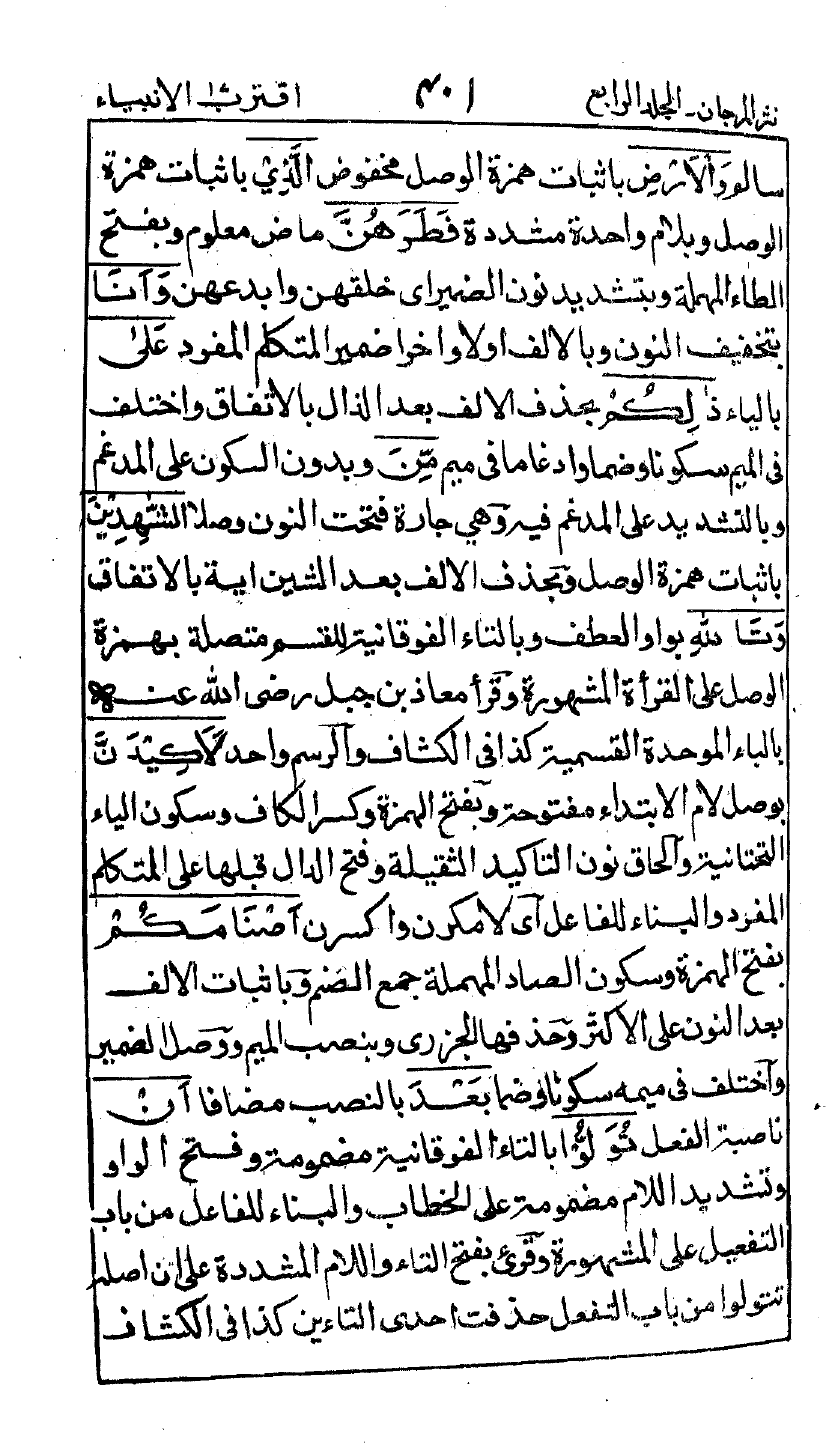 نثر المرجان - المجلد الرابع ٤٠١ اقترب الانبياء
سالم وَالْاَرْضِ باثبات همزة الوصل مخفوض الَّذِيْ باثبات همزة
الوصل وبلام واحدة مشددة فَطَرَهُنَّ ماض معلوم وبفتح
الطاء المهملة وبتشديد نون الضمير اى خلقهن وابدعهن وَاَنَا
بتخفيف النون وبالالف اولا واخرا ضمير المتكلم المفرد عَلٰى
بالياء ذٰلِكُمْ بحذف الالف بعد الذال بالاتفاق واختلف
فى الميم سكونا وضما وادغاما فى ميم مِّنَ وبدون السكون على المدغم
وبالتشديد على المدغم فيه وهي جارة فتحت النون وصلا الشّٰهِدِيْنَ
باثبات همزة الوصل وبحذف الالف بعد الشين اية بالاتفاق
وَتَاللّٰهِ بواو العطف وبالتاء الفوقانية للقسم متصلة بهمزة
الوصل على القرأة المشهورة وقرأ معاذ بن جبل رضى الله عنه
بالباء الموحدة القسمية كذا فى الكشاف والرسم واحد لَاَكِيْدَنَّ
بوصل لام الابتداء مفتوحة وبفتح الهمزة وكسر الكاف وسكون الياء
التحتانية والحاق نون التاكيد الثقيلة وفتح الدال قبلها على المتكلم
المفرد والبناء للفاعل اى لامكرن واكسرن اَصْنَامَكُمْ
بفتح الهمزة وسكون الصاد المهملة جمع الصنم وباثبات الالف
بعد النون على الاكثر وحذفها الجزرى وبنصب الميم ووصل الضمير
واختلف فى ميمه سكونا وضما بَعْدَ بالنصب مضافا اَنْ
ناصبة الفعل تُوَلُّوْا بالتاء الفوقانية مضمومة وفتح الواو
وتشديد اللام مضمومة على الخطاب والبناء للفاعل من باب
التفعيل على المشهورة وقرئ بفتح التاء واللام المشددة على ان اصله
تتولوا من باب التفعل حذفت احدى التاءين كذا فى الكشاف